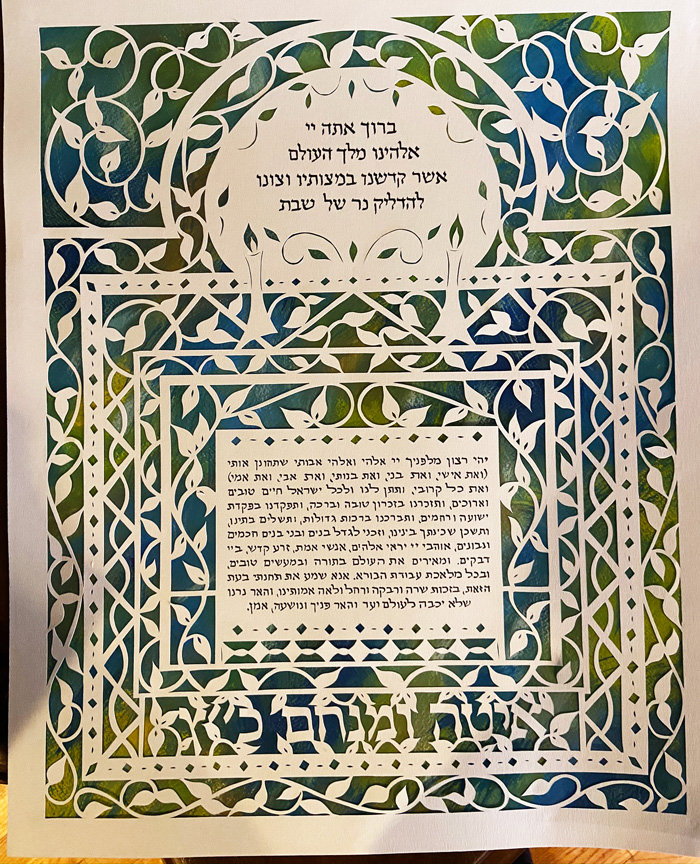 ברוך אתה יי
אלהינו מלך העולם
אשר קדשנו במצותיו וצונו
להדליק נר של שבת
יהי רצון מלפניך יי אלהי ואלהי אבותי שתחונן אותי
(ואת אישי, ואת בני, ואת בנותי, ואת אבי, ואת אמי)
ואת כל קרובי, ותתן לנו ולכל ישראל חיים טובים
וארוכים, ותזכרנו בזכרון טובה וברכה, ותפקדנו בפקדת
ישועה ורחמים, ותברכנו ברכות גדולות, ותשלים בתינו,
ותשכן שכינתך בינינו, וזכני לגדל בנים ובני בנים חכמים
ונבונים, אוהבי יי יראי אלהים, אנשי אמת, זרע קדש, ביי
דבקים, ומאירים את העולם בתורה ובמעשים טובים,
ובכל מלאכת עבודת הבורא. אנא שמע את תחנתי בעת
הזאת, בזכות שרה ורבקה ורחל ולאה אמותינו, והאר נרנו
שלא יכבה לעולם ועד והאר פניך ונושעה, אמן.
איטה ומנחם כ״ץ